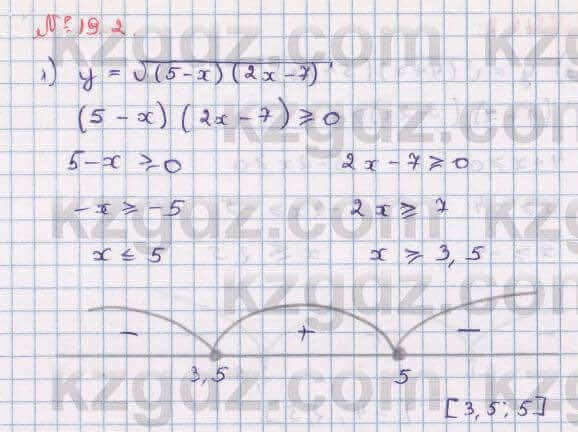 № 19.2.
1) y = √(5-x)(2x-7)
(5-x)(2x-7) ≥ 0
5-x ≥ 0 2x-7 ≥ 0
-x ≥ -5 2x ≥ 7
x ≤ 5 x ≥ 3,5
- + -
3,5 5
[3,5; 5]
kzgdz.com
kzgdz.com
kzgdz.com
kzgdz.com
kzgdz.com
kzgdz.com